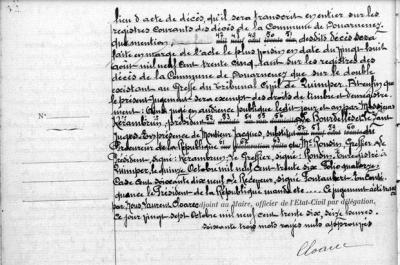 lieu d'acte de décès, qu'il sera transcrit en entier sur les
registres courants des décès de la Commune de Douarnenez,
que mention desdits décès sera
faite en marge de l'acte le plus voisin en date du vingt-huit
août mil neuf cent trente cinq, tant sur les registres des
décès de la Commune de Douarnenez que sur le double
existant au Greffe du Tribunal Civil de Quimper. Dit enfin que
le présent jugement sera exempt des droits de timbre et d'enregistre
ment. Ainsi jugé en audience publique ledit jour et an par Messieurs
Kérambrun, président 52 53 54 55 56 de Bourdelles et Le
Juges. En présence de Monsieur Jacques, substitut 57 58
Procureur de la République et de Me Rondin, Greffier. Le
Président, signé : Kérambrun, Le Greffier, signé : Rondin. Enregistré à
Quimper, le quinze Octobre mil neuf cent trente six Folio quatorze
Case cent soixante dix neuf. Le Receveur, signé Fontaubert. En Consé
quence le Président de la République mande etc... Ce jugement a été transcrit
par Nous, Laurent Cloarec adjoint au Maire, officier de l'Etat-Civil par délégation,
ce jour vingt sept Octobre mil neuf cent trente six, seize heures.
soixante trois mots rayés nuls approuvés
Cloarec
N°